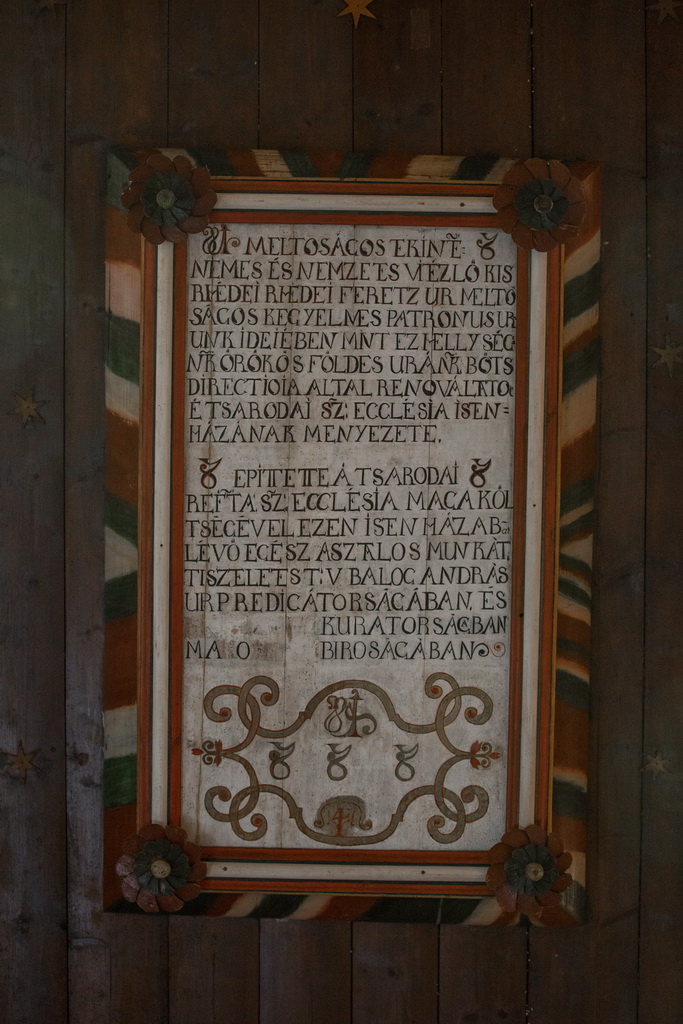 MELTOSÁGOS TEKINTE:
NEMES ÉS NEMZETS VITÉZLŐ KIS
RHÉDEI RHÉDEI FERETZ UR MELTO
SÁGOS KEGYELMES PATRONUS UR
UNK IDEIÉBEN MINT EZ HELLYSÉG
NK ÖRÖKÖS FÖLDES URÁNK BÖTS
DIRECTIOIA ALTAL RENOVÁLTATO
É TSARODAI SZ: ECCLÉSIA ISEN=
HÁZÁNAK MENYEZETE.
EPITTETTE Á TSARODAI
REFTA SZ: ECCLÉSIA MAGA KÖL
TSÉGÉVEL EZEN ISEN HÁZAB
LÉVŐ EGÉSZ ASZTLOS MUNKÁT,
TISZELETES T: V BALOG ANDRÁS
UR PREDICÁTORSÁGÁBAN, ÉS
KURATORSÁGBAN
MA O BIROSÁGÁBAN